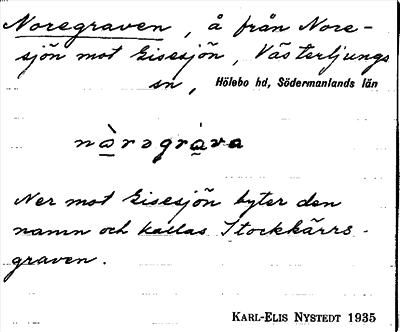 Noregraven, å från Nore-
sjön mot Sisesjön, Västerljungs
sn, Hölebo hd, Södermanlands län
nòrəgrava
Ner mot Sisesjön byter den
namn och kallas Stockkärrs-
graven.
KARL-ELIS NYSTEDT 1935